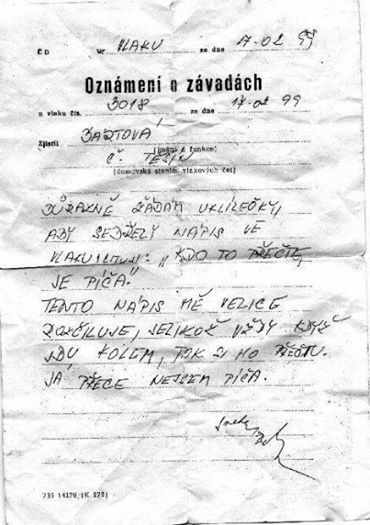 ČD Ve VLAKU ze dne 17.02 99
Oznámení o závadách
u vlaku čís. 3018 ze dne 17.02 99
Zjistil BARTOVÁ
(jméno a funkce)
Č. TĚŠÍN
(domovská stanice vlakových čet)
DŮRAZNĚ ŽÁDÁM UKLÍZEČKY,
ABY SEDŘELY NÁPIS VE
VLAKU "KDO TO PŘEČTE,
JE PÍČA."
TENTO NÁPIS MĚ VELICE
ROZČILUJE, JELIKOŽ VŽDY KDYŽ
JDU KOLEM, TAK SI HO PŘEČTU.
JÁ PŘECE NEJSEM PÍČA.
735 14179 (K 178)